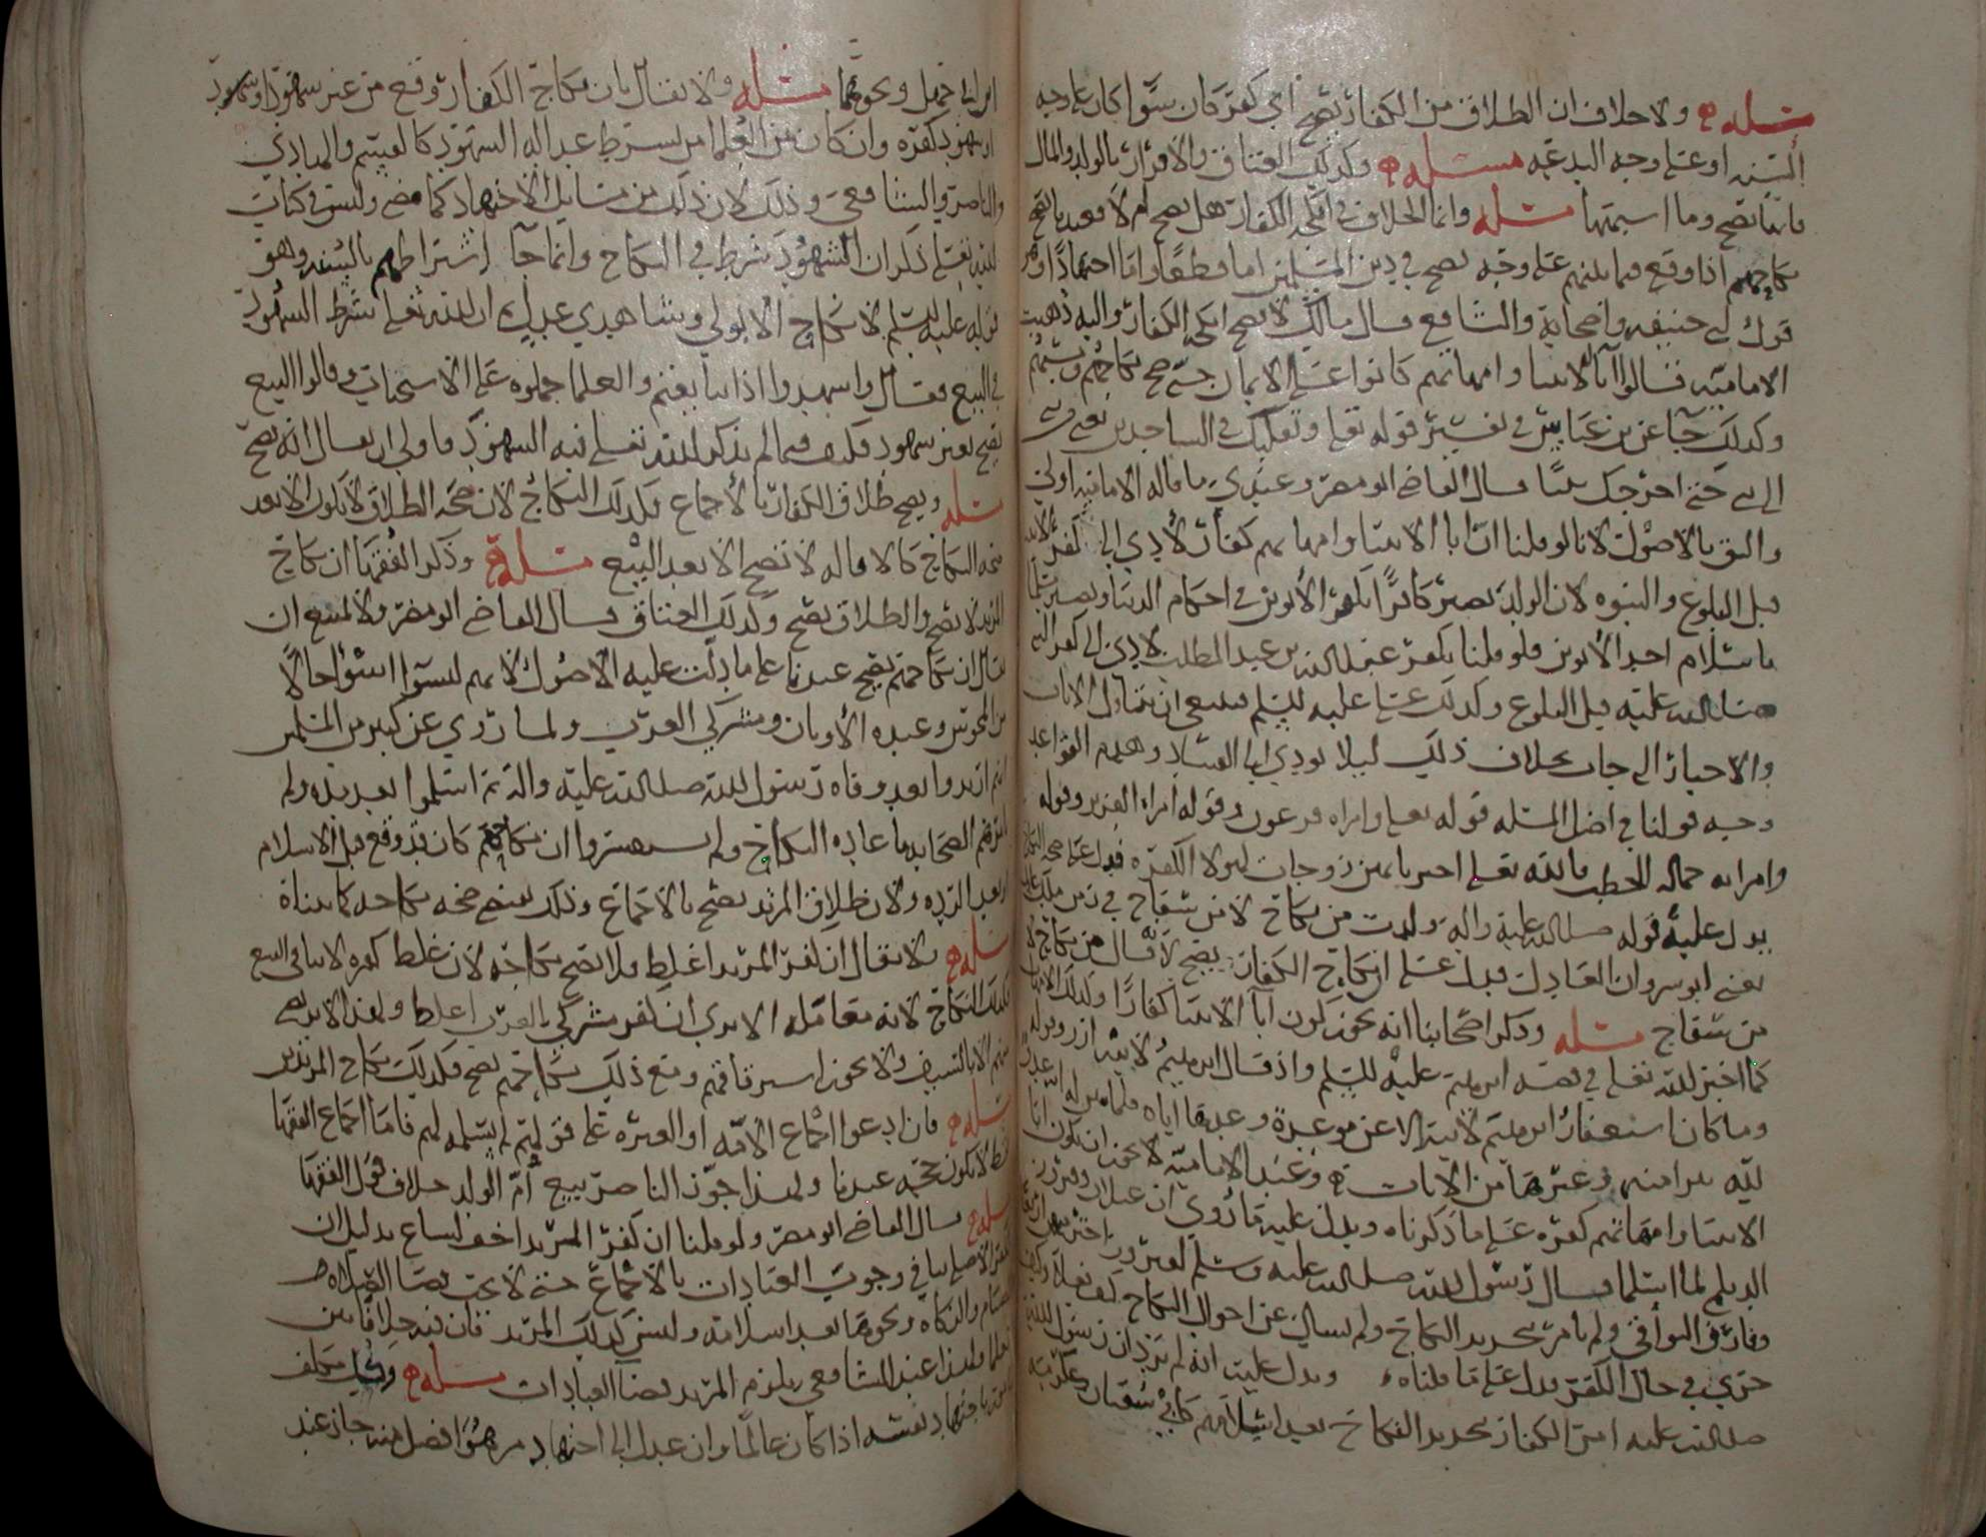 مسئله ولا خلاف ان الطلاق من الكفار يصح اي كفر كان سوا كان على وجه
السنه او على وجه البدعه مسئله وكذلك العتاق والاقرار بالولد والمال
فانها تصح وما اشبهها مسئله وانما الخلاف في انكحه الكفار هل يصح ام لا فعندنا يصح
نكاحهم اذا وقع فيما بينهم على وجه يصح في دين المسلمين اما قطعا واما اجتهادا وهو
قول ابي حنيفه واصحابه والشافعي وقال مالك لا يصح انكحه الكفار واليه ذهبت
الاماميه فقالوا آبا الانبيا وامهاتهم كانوا على الايمان حتى صح نكاحهم
وكذلك جآ عن بن عباس في تفسير قوله تعلى وتقلبك في الساجدين يعني من نبي
الى نبي حتى اخرجك نبيا قال القاضي ابو مضر وعندي ما قاله الاماميه اولى
واليق بالاصول لانا لو قلنا ان ابا الانبيا وامهاتهم كفار لادى الى كفر الانبيا
قبل البلوغ والنبوه لان الولد يصير كافرا بكفر الابوين في احكام الدنيا ويصير مسلما
باسلام احد الابوين فلو قلنا بكفر عبدالله بن عبد المطلب لادى الى كفر النبي
صلى الله عليه قبل البلوغ وكذلك عيسى عليه السلم فينبغي ان نتاول الايات
والاخبار التي جات بخلاف ذلك ليلا يودي الى الفساد وهدم القواعد
وجه قولنا في اصل المسئله قوله تعلى وامراه فرعون وقوله امراه العزيز وقوله
وامراته حماله الحطب فالله تعلى اخبر بانهن زوجات لهولا الكفره فدل على صحه النكاح
يدل عليه قوله صلى الله عليه واله ولدت من نكاح لا من سفاح في زمن ملك عادل
يعني انوسروان العادل فدل على ان نكاح الكفار يصح لانه قال من نكاح لا
من سفاح مسئله وذكر اصحابنا انه يجوز كون آبا الانبيا كفارا وكذلك الامهات
كما اخبر الله تعلى في قصه ابرهيم عليه السلم واذ قال ابرهيم لابيه آزر وقوله
وما كان استغفار ابرهيم لابيه الا عن موعدة وعدها اياه فلما تبين له انه عدو
لله تبرا منه وغيرها من الايات وعند الاماميه لا يجوز ان يكون ابا
الانبيا وامهاتهم كفره على ما ذكرناه ويدل عليه ما روي ان غيلان وفيروز
الديلمي لما اسلما قال رسول الله صلى الله عليه وسلم لفيروز اختر احداهن
وفارق البواقي ولم يامر بتجديد النكاح ولم يسال عن احوال النكاح كيف
جرى في حال الكفر فدل على ما قلناه ويدل عليه انه لم يرو ان رسول الله
صلى الله عليه امر الكفار بتجديد النكاح بعد اسلامهم كابي سفيان وعكرمه
ابن ابي جهل ونحوهما مسئله ولا يقال بان نكاح الكفار وقع من غير شهود او بشهود
او بشهود كفره وان كان من العلما من يشترط عداله الشهود كالقسم والهادي
والناصر والشافعي وذلك لان ذلك من مسايل الاجتهاد كما مضى وليس في كتاب
الله تعلى ذكر ان الشهود شرط في النكاح وانما جآ اشتراطهم بالسنه وهو
قوله عليه السلم لا نكاح الا بولي وشاهدي عدل ان الله تعلى شرط الشهود
في البيع فقال واشهدوا اذا تبايعتم والعلما حملوه على الاستحباب وقالوا البيع
يصح بغير شهود فكيف فيما لم يذكر الله تعلى فيه الشهود فاولى ان يقال انه يصح
مسئله ويصح طلاق الكفار بالاجماع فكذلك النكاح لان صحه الطلاق لا يكون الا بعد
صحه النكاح كالاقاله لا تصح الا بعد البيع مسئله وذكر الفقها ان نكاح
المرتد لا يصح والطلاق يصح وكذلك العتاق قال القاضي ابو مضر ولا يمتنع ان
يقال ان نكاحهم يصح عندنا على ما دلت عليه الاصول لانهم ليسوا اسوا حالا
من المجوس وعبده الاوثان ومشركي العرب ولما روي عن كثير من المسلمين
انهم ارتدوا بعد وفاه رسول الله صلى الله عليه واله ثم اسلموا بعد مده ولم
تامرهم الصحابه باعاده النكاح ولم يستفسروا ان نكاحهم كان قد وقع قبل الاسلام
او بعد الرده ولان طلاق المرتد يصح بالاجماع وذلك يقتضي صحه نكاحه كما بيناه
مسئله ولا يقال ان كفر المرتد اغلظ فلا يصح نكاحه لان غلظ كفره لا ينافي البيع
فكذلك النكاح لانه معامله الا ترى ان كفر مشركي العرب اغلظ ولهذا لا يرضى
منهم الا بالسيف ولا يجوز استرقاقهم ومع ذلك نكاحهم يصح فكذلك نكاح المرتدين
مسئله فان ادعوا اجماع الامه او العتره على قولهم لم نسلمه لهم فاما اجماع الفقها
فقط لا يكون حجه عندنا ولهذا جوز الناصر بيع ام الولد خلاف قول الفقها
مسئله قال القاضي ابو مضر ولو قلنا ان كفر المرتد اخف لساغ بدليل ان
الكفر الاصلي ينافي وجوب العبادات بالاجماع حتى لا يجب قضا الصلاه
والصيام والزكاه ونحوهما بعد اسلامه وليس كذلك المرتد فان فيه خلافا بين
العلما ولهذا عند الشافعي يلزم المرتد قضا العبادات مسئله وكل مكلف
باجتهاد نفسه اذا كان عالما وان عدل الى اجتهاد من هو افضل منه جاز عند